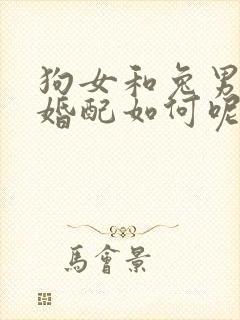 狗女和兔男
婚配如何呢
馬會景